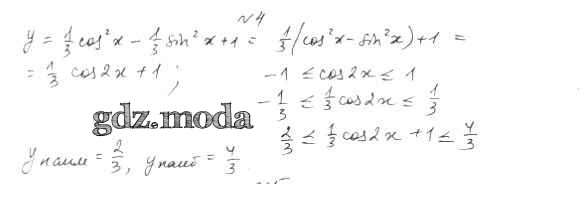 №4
y = 1/3 cos²x - 1/3 sin²x + 1 = 1/3 (cos²x - sin²x) + 1 =
= 1/3 cos2x + 1; -1 ≤ cos2x ≤ 1
-1/3 ≤ 1/3 cos2x ≤ 1/3
gdz.moda
2/3 ≤ 1/3 cos2x + 1 ≤ 4/3
yнаим = 2/3, yнаиб = 4/3